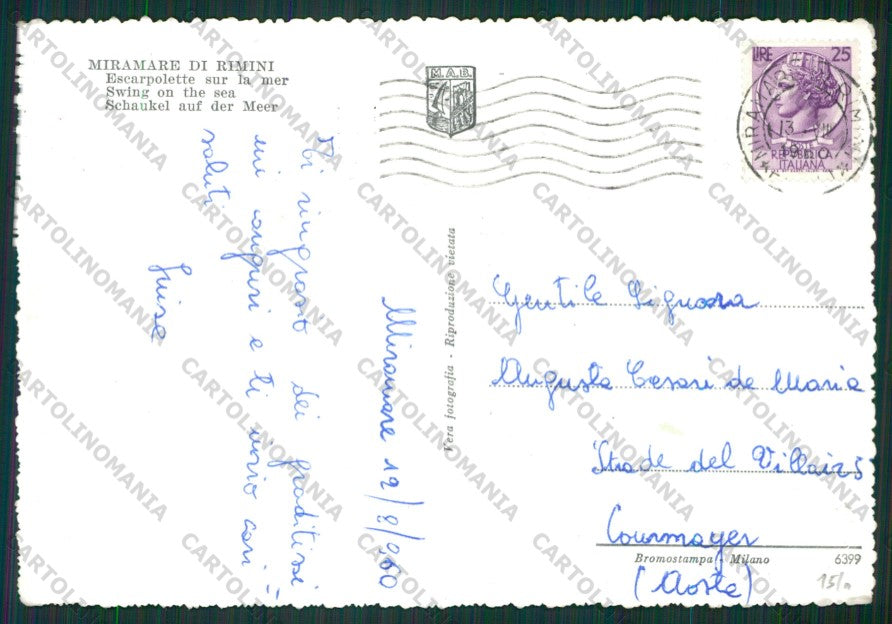 MIRAMARE DI RIMINI
Escarpolette sur la mer
Swing on the sea
Schaukel auf der Meer
M.A.B.
LIRE 25
POSTE
REPUBBLICA
ITALIANA
Ti ringrazio dei graditissi
mi auguri e ti invio cari
saluti
Luisa
Miramare 12/8/960
Vera fotografia - Riproduzione vietata
Gentile Signora
Augusta Cesari de Maria
Strade del Villair 5
Courmayer
(Aosta)
Bromostampa - Milano
6399
CARTOLINOMANIA